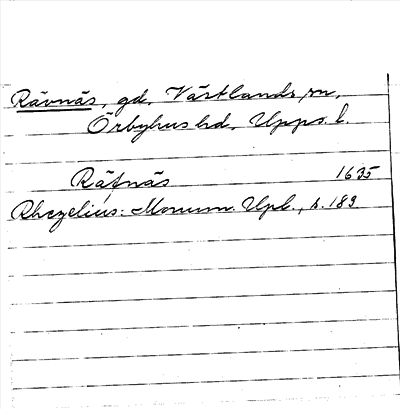 Rävnäs, gd, Västlands sn,
Örbyhus hd. Upps. l.
Räfnäs 1635
Rhezelius: Monum. Upl., s. 189